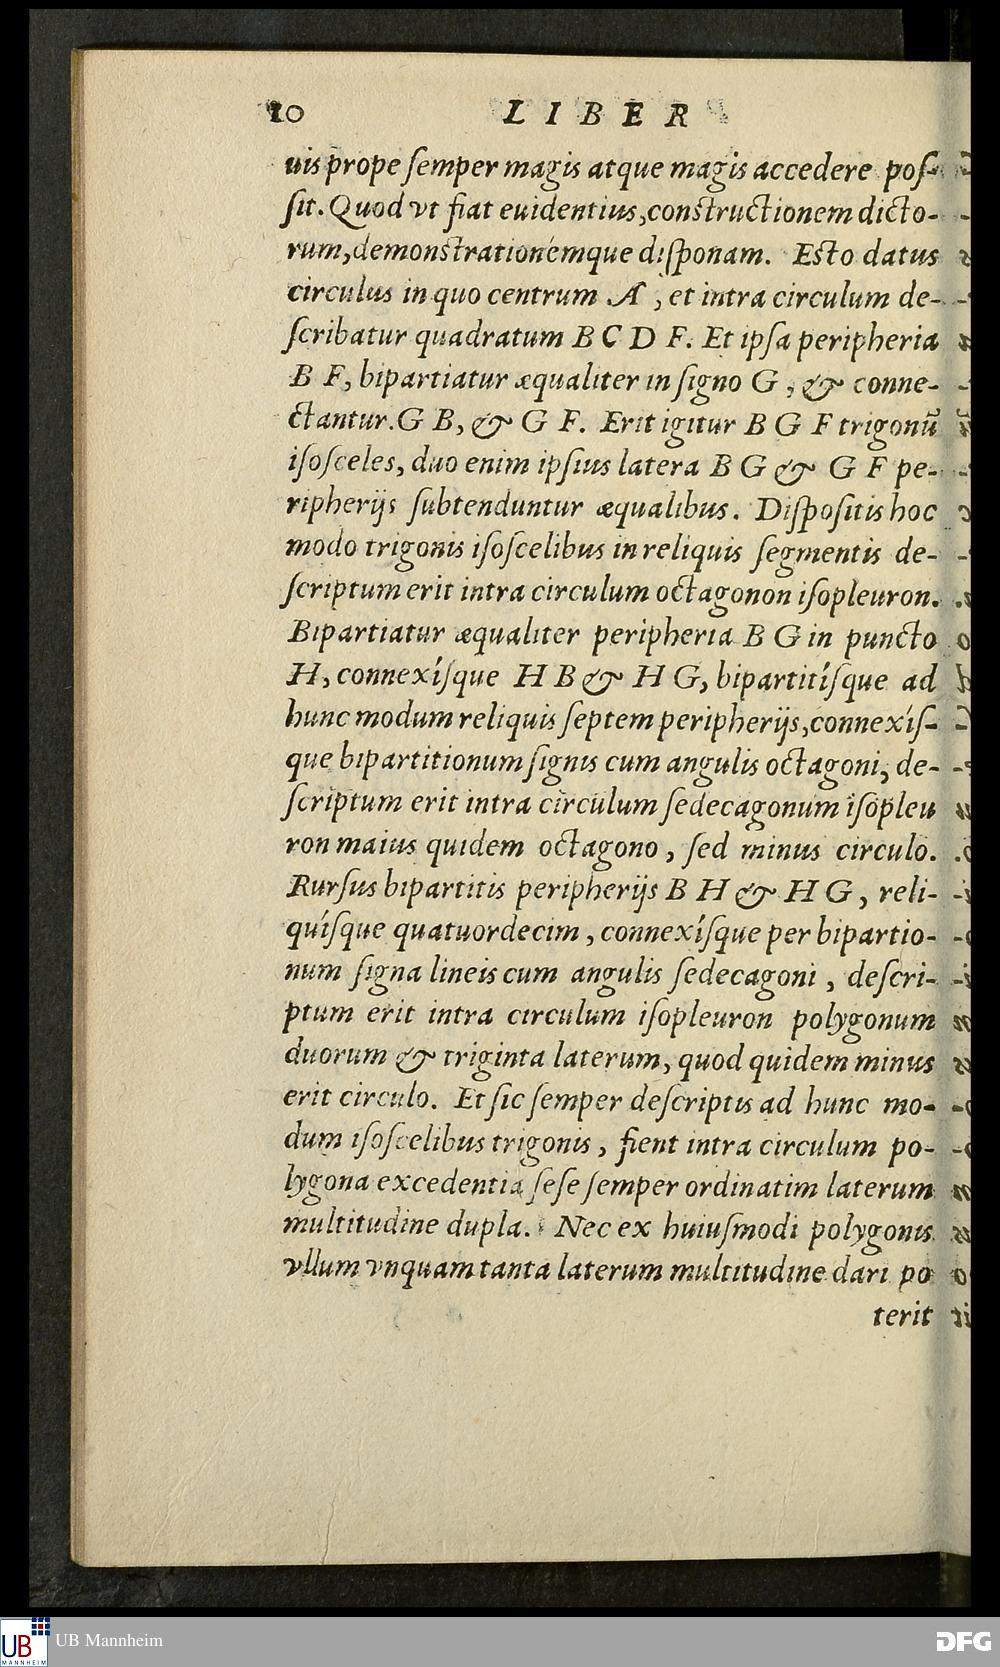 10 LIBER
uis prope ſemper magis atque magis accedere poſ-
ſit. Quod vt fiat euidentius, conſtructionem dicto-
rum, demonſtrationémque diſponam. Eſto datus
circulus in quo centrum A, et intra circulum de-
ſcribatur quadratum B C D F. Et ipſa peripheria
B F, bipartiatur æqualiter in ſigno G, & conne-
ctantur. G B, & G F. Erit igitur B G F trigonū
iſoſceles, duo enim ipſius latera B G & G F pe-
ripherijs ſubtenduntur æqualibus. Diſpoſitis hoc
modo trigonis iſoſcelibus in reliquis ſegmentis de-
ſcriptum erit intra circulum octagonon iſopleuron.
Bipartiatur æqualiter peripheria B G in puncto
H, connexíſque H B & H G, bipartitíſque ad
hunc modum reliquis ſeptem peripherijs, connexíſ-
que bipartitionum ſignis cum angulis octagoni, de-
ſcriptum erit intra circulum ſedecagonum iſopleu
ron maius quidem octagono, ſed minus circulo.
Rurſus bipartitis peripherijs B H & H G, reli-
quíſque quatuordecim, connexíſque per bipartio-
num ſigna lineis cum angulis ſedecagoni, deſcri-
ptum erit intra circulum iſopleuron polygonum
duorum & triginta laterum, quod quidem minus
erit circulo. Et ſic ſemper deſcriptis ad hunc mo-
dum iſoſcelibus trigonis, fient intra circulum po-
lygona excedentia ſeſe ſemper ordinatim laterum
multitudine dupla. Nec ex huiuſmodi polygonis
vllum vnquam tanta laterum multitudine dari po
terit
UB Mannheim
UB
MANNHEIM
DFG